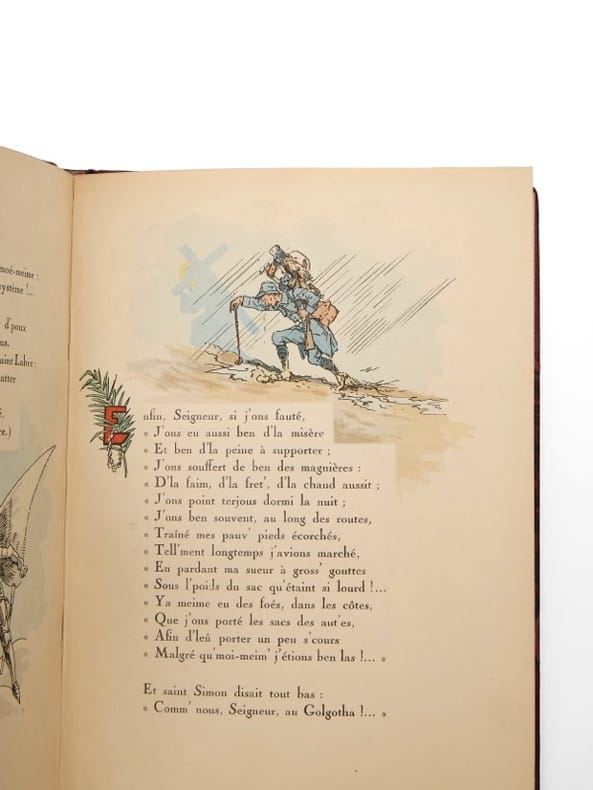 moé-meime :
système !...
d'poux
us.
saint Labre ;
atter
é.
re.)
Enfin, Seigneur, si j'ons fauté,
« J'ons eu aussi ben d'la misère
« Et ben d'la peine à supporter ;
« J'ons souffert de ben des magnières :
« D'la faim, d'la fret', d'la chaud aussit ;
« J'ons point terjous dormi la nuit ;
« J'ons ben souvent, au long des routes,
« Traîné mes pauv' pieds écorchés,
« Tell'ment longtemps j'avions marché,
« En pardant ma sueur à gross' gouttes
« Sous l'poids du sac qu'étaint si lourd !...
« Ya meime eu des foés, dans les côtes,
« Que j'ons porté les sacs des aut'es,
« Afin d'leû porter un peu s'cours
« Malgré qu'moi-meim' j'étions ben las !... »
Et saint Simon disait tout bas :
« Comm' nous, Seigneur, au Golgotha !... »